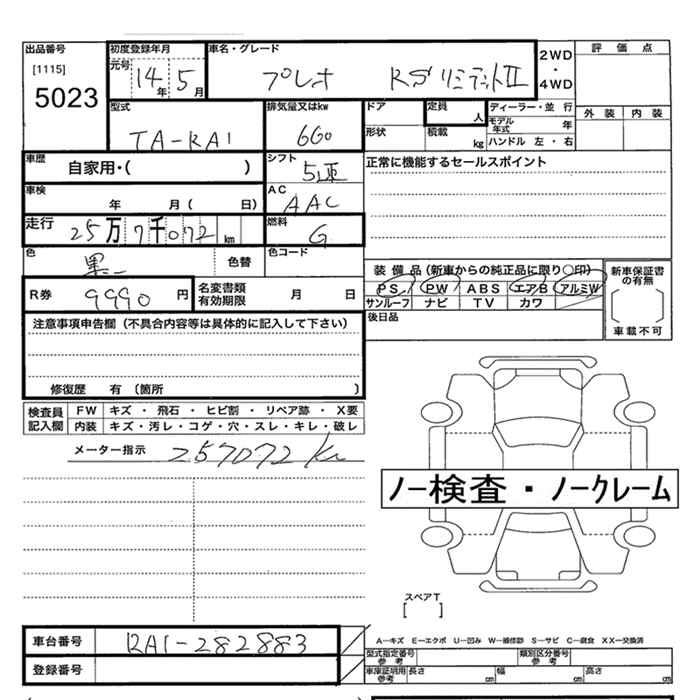 出品番号 初度登録年月 車名・グレード 評価点
[1115] 元号 14年 5月 プレオ RSリミテッドII 2WD・4WD
5023
型式 排気量又はkw ドア 定員 人 ディーラー・並行 外装 内装
TA-RA1 660 形状 積載 kg モデル年式 年
ハンドル 左・右
車歴 自家用・( ) シフト 5速 正常に機能するセールスポイント
車検 年 月( 日) AC AAC
走行 25万7千072km 燃料 G
色 黒 色替 色コード
装備品(新車からの純正品に限り○印) 新車保証書の有無
R券 9990円 名変書類有効期限 月 日 PS PW ABS エアB アルミW
サンルーフ ナビ TV カワ [ ]
注意事項申告欄(不具合内容等は具体的に記入して下さい) 後日品 車載不可
修復歴 有 〔箇所 〕
検査員記入欄 FW キズ・飛石・ヒビ割・リペア跡・X要
内装 キズ・汚レ・コゲ・穴・スレ・キレ・破レ
メーター指示 257072Km
ノー検査・ノークレーム
スペアT
[ ]
車台番号 RA1-282883 A-キズ E-エクボ U-凹み W-補修跡 S-サビ C-腐食 XX-交換済
登録番号 型式指定番号 参考 類別区分番号 参考
車庫証明用 参考 長さ cm 幅 cm 高さ cm